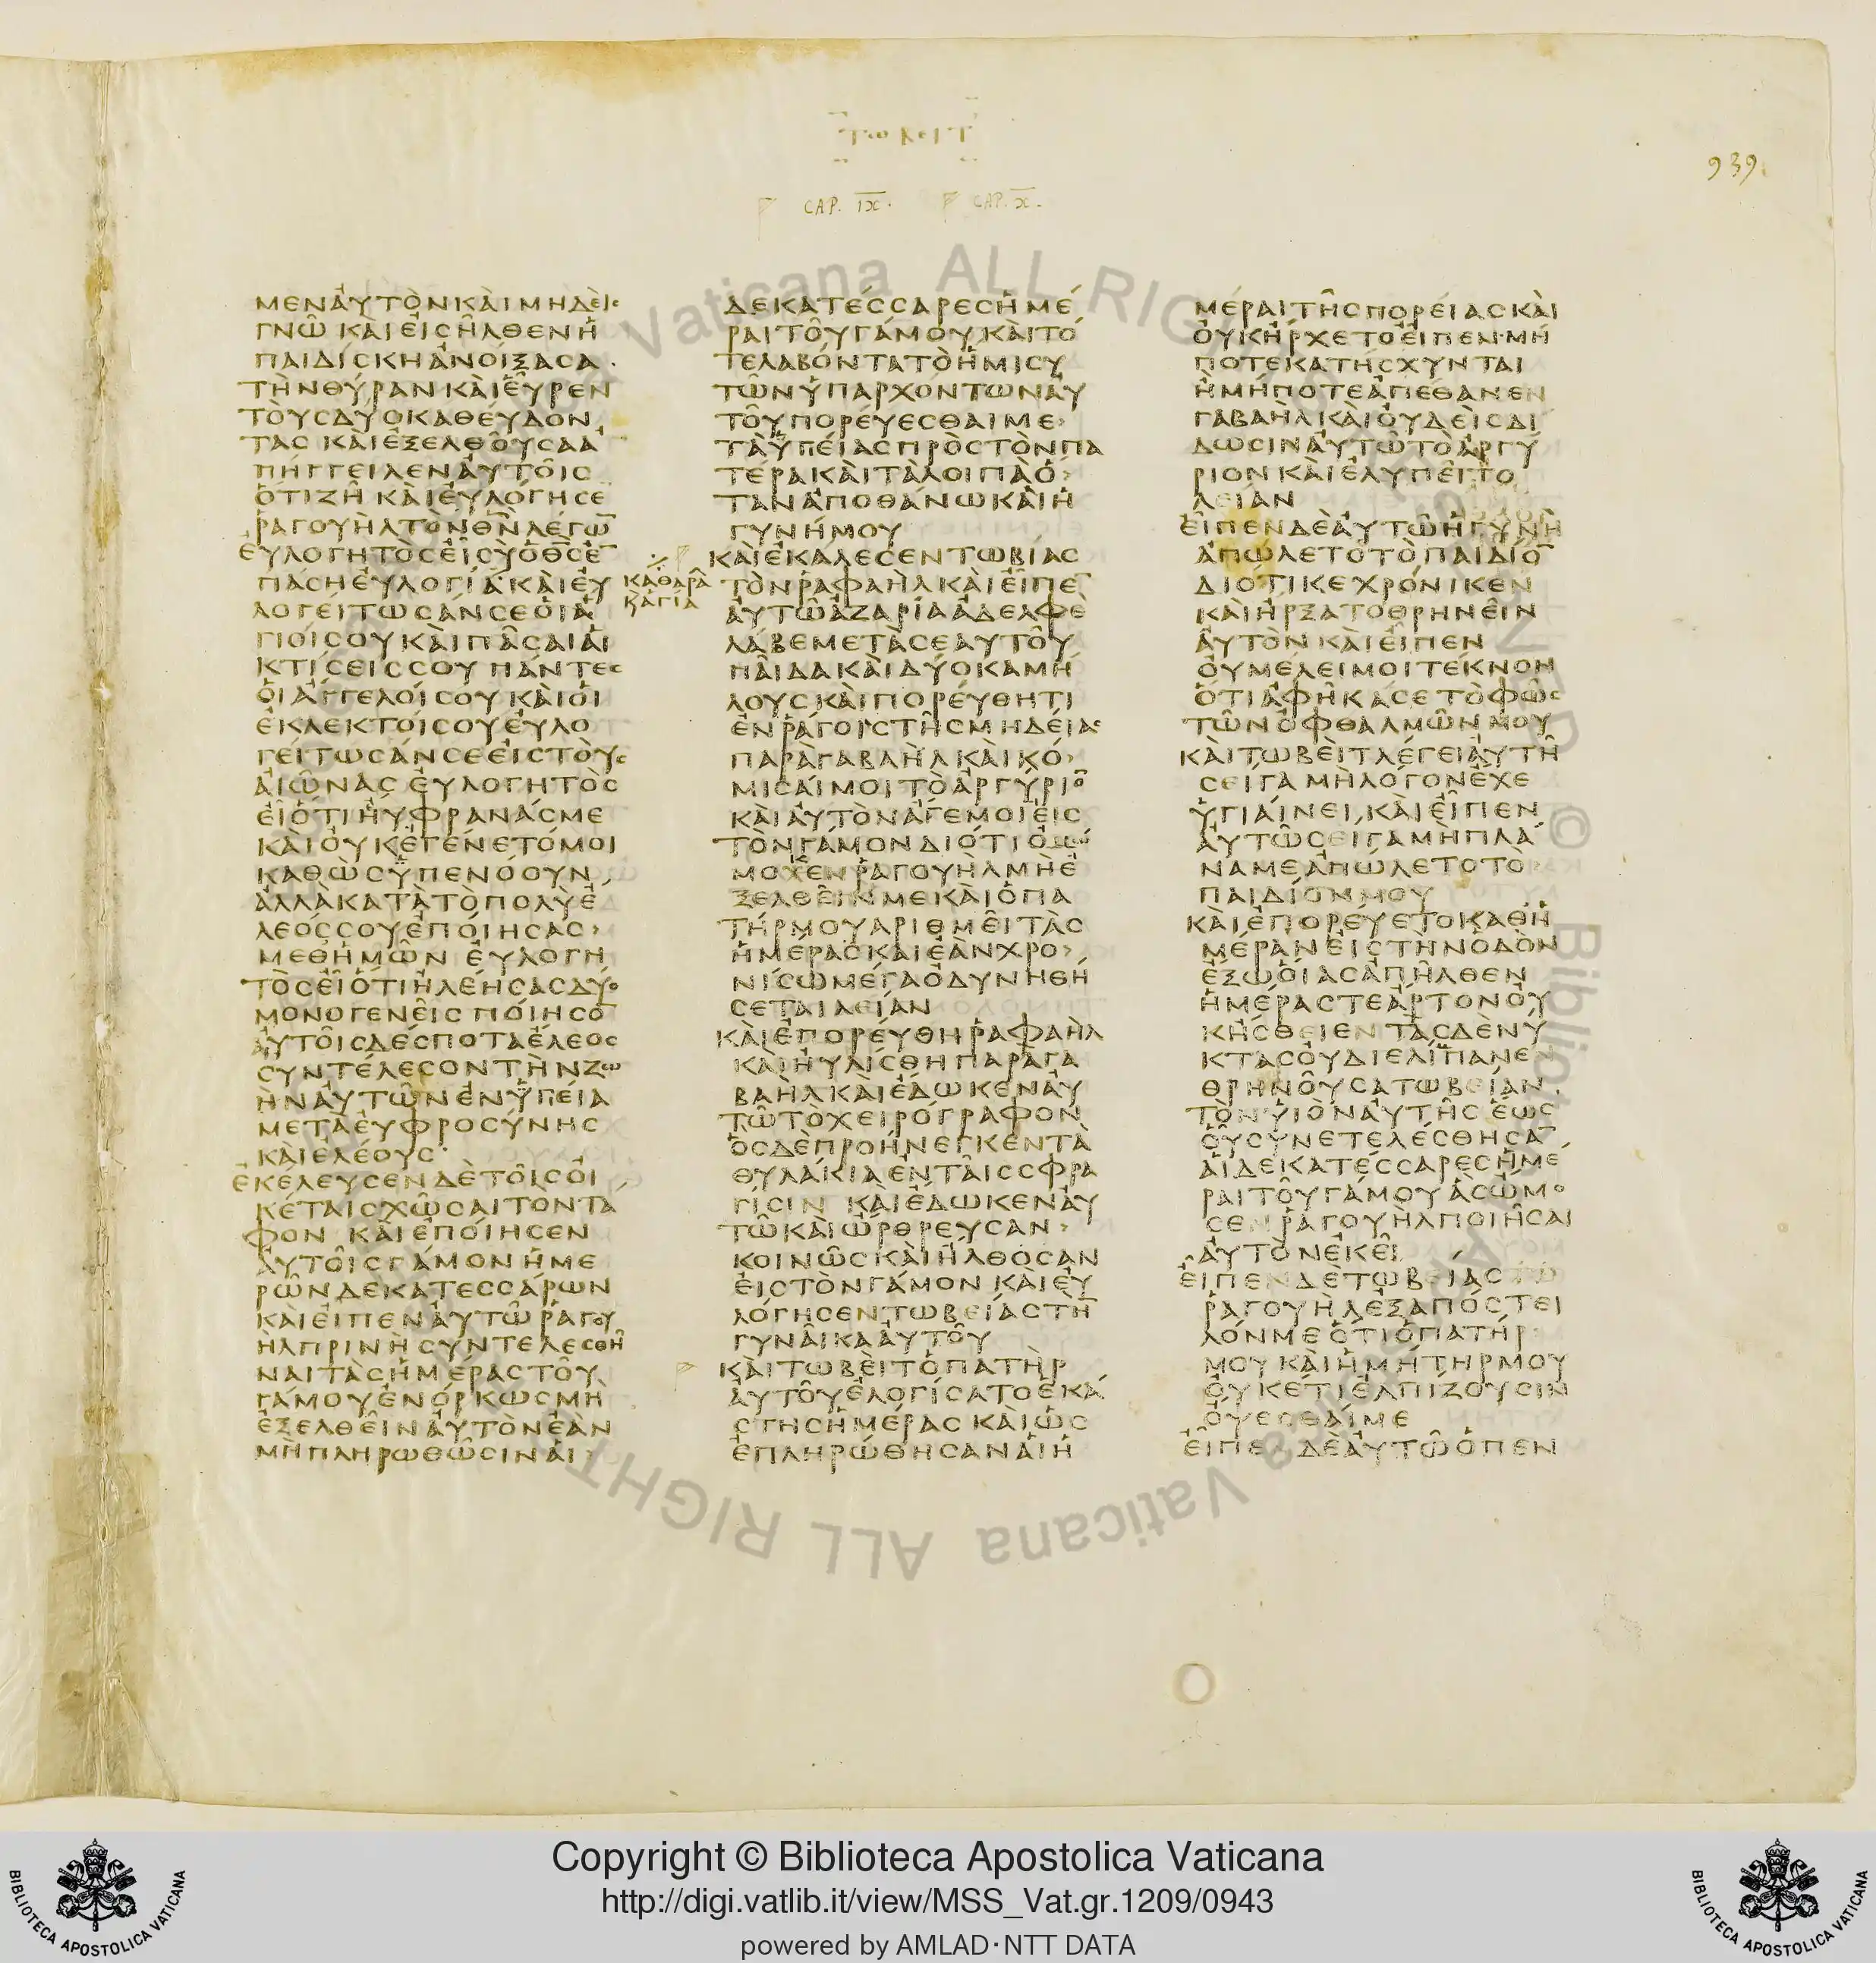 τωβειτ
939.
CAP. IX.
CAP. X.
ΜΕΝΑΥΤΟΝΚΑΙΜΗΔΕΙϹ
ΓΝΩ ΚΑΙΕΙϹΗΛΘΕΝΗ
ΠΑΙΔΙϹΚΗΑΝΟΙΞΑϹΑ
ΤΗΝΘΥΡΑΝΚΑΙΕΥΡΕΝ
ΤΟΥϹΔΥΟΚΑΘΕΥΔΟΝ
ΤΑϹ ΚΑΙΕΞΕΛΘΟΥϹΑΑ
ΠΗΓΓΕΙΛΕΝΑΥΤΟΙϹ
ΟΤΙΖΗ ΚΑΙΕΥΛΟΓΗϹΕ
ΡΑΓΟΥΗΛΤΟΝΘ̅Ν̅ΛΕΓΩ̅
ΕΥΛΟΓΗΤΟϹΕΙϹΥΟΘ̅Ϲ̅Ε̅
ΠΑϹΗΕΥΛΟΓΙΑ ΚΑΙΕΥ
ΛΟΓΕΙΤΩϹΑΝϹΕΟΙΑ
ΓΙΟΙϹΟΥΚΑΙΠΑϹΑΙΑΙ
ΚΤΙϹΕΙϹϹΟΥ ΠΑΝΤΕϹ
ΟΙΑΓΓΕΛΟΙϹΟΥΚΑΙΟΙ
ΕΚΛΕΚΤΟΙϹΟΥΕΥΛΟ
ΓΕΙΤΩϹΑΝϹΕΕΙϹΤΟΥϹ
ΑΙΩΝΑϹ ΕΥΛΟΓΗΤΟϹ
ΕΙΟΤΙΗΥΦΡΑΝΑϹΜΕ
ΚΑΙΟΥΚΕΓΕΝΕΤΟΜΟΙ
ΚΑΘΩϹΥΠΕΝΟΟΥΝ
ΑΛΛΑΚΑΤΑΤΟΠΟΛΥΕ
ΛΕΟϹϹΟΥΕΠΟΙΗϹΑϹ›
ΜΕΘΗΜΩΝ ΕΥΛΟΓΗ
ΤΟϹΕΙΟΤΙΗΛΕΗϹΑϹΔΥΟ
ΜΟΝΟΓΕΝΕΙϹ ΠΟΙΗϹΟ̅
ΑΥΤΟΙϹΔΕϹΠΟΤΑΕΛΕΟϹ
ϹΥΝΤΕΛΕϹΟΝΤΗΝΖΩ
ΗΝΑΥΤΩΝΕΝΥΓΕΙΑ
ΜΕΤΑΕΥΦΡΟϹΥΝΗϹ
ΚΑΙΕΛΕΟΥϹ
ΕΚΕΛΕΥϹΕΝΔΕΤΟΙϹΟΙ
ΚΕΤΑΙϹΧΩϹΑΙΤΟΝΤΑ
ΦΟΝ ΚΑΙΕΠΟΙΗϹΕΝ
ΑΥΤΟΙϹΓΑΜΟΝΗΜΕ
ΡΩΝΔΕΚΑΤΕϹϹΑΡΩΝ
ΚΑΙΕΙΠΕΝΑΥΤΩΡΑΓΟΥ
ΗΛΠΡΙΝΗϹΥΝΤΕΛΕϹΘΗ
ΝΑΙΤΑϹΗΜΕΡΑϹΤΟΥ
ΓΑΜΟΥΕΝΟΡΚΩϹΜΗ
ΕΞΕΛΘΕΙΝΑΥΤΟΝΕΑΝ
ΜΗΠΛΗΡΩΘΩϹΙΝΑΙ›
ΚΑΘΑΡΑ
ΚΑΓΙΑ
ΔΕΚΑΤΕϹϹΑΡΕϹΗΜΕ
ΡΑΙΤΟΥΓΑΜΟΥΚΑΙΤΟ
ΤΕΛΑΒΟΝΤΑΤΟΗΜΙϹΥ
ΤΩΝΥΠΑΡΧΟΝΤΩΝΑΥ
ΤΟΥΠΟΡΕΥΕϹΘΑΙΜΕ›
ΤΑΥΓΕΙΑϹΠΡΟϹΤΟΝΠΑ
ΤΕΡΑΚΑΙΤΑΛΟΙΠΑΟ›
ΤΑΝΑΠΟΘΑΝΩΚΑΙΗ
ΓΥΝΗΜΟΥ
ΚΑΙΕΚΑΛΕϹΕΝΤΩΒΙΑϹ
ΤΟΝΡΑΦΑΗΛΚΑΙΕΙΠΕ̅
ΑΥΤΩΑΖΑΡΙΑΑΔΕΛΦΕ
ΛΑΒΕΜΕΤΑϹΕΑΥΤΟΥ
ΠΑΙΔΑΚΑΙΔΥΟΚΑΜΗ
ΛΟΥϹΚΑΙΠΟΡΕΥΘΗΤΙ
ΕΝΡΑΓΟΙϹΤΗϹΜΗΔΕΙΑϹ
ΠΑΡΑΓΑΒΑΗΛΚΑΙΚΟ›
ΜΙϹΑΙΜΟΙΤΟΑΡΓΥΡΙΟ̅
ΚΑΙΑΥΤΟΝΑΓΕΜΟΙΕΙϹ
ΤΟΝΓΑΜΟΝΔΙΟΤΙΟΜΩ
ΜΟΚΕΝΡΑΓΟΥΗΛΜΗΕ
ΞΕΛΘΕΙΝΜΕΚΑΙΟΠΑ
ΤΗΡΜΟΥΑΡΙΘΜΕΙΤΑϹ
ΗΜΕΡΑϹΚΑΙΕΑΝΧΡΟ›
ΝΙϹΩΜΕΓΑΟΔΥΝΗΘΗ
ϹΕΤΑΙΛΕΙΑΝ
ΚΑΙΕΠΟΡΕΥΘΗΡΑΦΑΗΛ
ΚΑΙΗΥΛΙϹΘΗΠΑΡΑΓΑ
ΒΑΗΛΚΑΙΕΔΩΚΕΝΑΥ
ΤΩΤΟΧΕΙΡΟΓΡΑΦΟΝ
ΟϹΔΕΠΡΟΗΝΕΓΚΕΝΤΑ
ΘΥΛΑΚΙΑΕΝΤΑΙϹϹΦΡΑ
ΓΙϹΙΝ ΚΑΙΕΔΩΚΕΝΑΥ
ΤΩΚΑΙΩΡΘΡΕΥϹΑΝ›
ΚΟΙΝΩϹΚΑΙΗΛΘΟϹΑΝ
ΕΙϹΤΟΝΓΑΜΟΝΚΑΙΕΥ
ΛΟΓΗϹΕΝΤΩΒΕΙΑϹΤΗ̅
ΓΥΝΑΙΚΑΑΥΤΟΥ
ΚΑΙΤΩΒΕΙΤΟΠΑΤΗΡ
ΑΥΤΟΥΕΛΟΓΙϹΑΤΟΕΚΑ
ϹΤΗϹΗΜΕΡΑϹ ΚΑΙΩϹ
ΕΠΛΗΡΩΘΗϹΑΝΑΙΗ
ΜΕΡΑΙΤΗϹΠΟΡΕΙΑϹΚΑΙ
ΟΥΚΗΡΧΕΤΟΕΙΠΕΝ ΜΗ
ΠΟΤΕΚΑΤΗϹΧΥΝΤΑΙ
ΗΜΗΠΟΤΕΑΠΕΘΑΝΕΝ
ΓΑΒΑΗΛΚΑΙΟΥΔΕΙϹΔΙ
ΔΩϹΙΝΑΥΤΩΤΟΑΡΓΥ
ΡΙΟΝΚΑΙΕΛΥΠΕΙΤΟ
ΛΕΙΑΝ
ΕΙΠΕΝΔΕΑΥΤΩΗΓΥΝΗ
ΑΠΩΛΕΤΟΤΟΠΑΙΔΙΟ̅
ΔΙΟΤΙΚΕΧΡΟΝΙΚΕΝ
ΚΑΙΗΡΞΑΤΟΘΡΗΝΕΙΝ
ΑΥΤΟΝ ΚΑΙΕΙΠΕΝ
ΟΥΜΕΛΕΙΜΟΙΤΕΚΝΟΝ
ΟΤΙΑΦΗΚΑϹΕΤΟΦΩϹ
ΤΩΝΟΦΘΑΛΜΩΝΜΟΥ
ΚΑΙΤΩΒΕΙΤΛΕΓΕΙΑΥΤΗ
ϹΕΙΓΑΜΗΛΟΓΟΝΕΧΕ
ΥΓΙΑΙΝΕΙ ΚΑΙΕΙΠΕΝ
ΑΥΤΩϹΕΙΓΑΜΗΠΛΑ
ΝΑΜΕΑΠΩΛΕΤΟΤΟ›
ΠΑΙΔΙΟΝΜΟΥ
ΚΑΙΕΠΟΡΕΥΕΤΟΚΑΘΗ
ΜΕΡΑΝΕΙϹΤΗΝΟΔΟΝ
ΕΞΩΟΙΑϹΑΠΗΛΘΕΝ
ΗΜΕΡΑϹΤΕΑΡΤΟΝΟΥ
ΚΗϹΘΙΕΝΤΑϹΔΕΝΥ
ΚΤΑϹΟΥΔΙΕΛΙΠΑΝΕΝ
ΘΡΗΝΟΥϹΑΤΩΒΕΙΑΝ
ΤΟΝΥΙΟΝΑΥΤΗϹ ΕΩϹ
ΟΥϹΥΝΕΤΕΛΕϹΘΗϹΑ̅
ΑΙΔΕΚΑΤΕϹϹΑΡΕϹΗΜΕ
ΡΑΙΤΟΥΓΑΜΟΥΑϹΩΜΟ
ϹΕΝΡΑΓΟΥΗΛΠΟΙΗϹΑΙ
ΑΥΤΟΝΕΚΕΙ
ΕΙΠΕΝΔΕΤΩΒΕΙΑϹΤΩ
ΡΑΓΟΥΗΛΕΞΑΠΟϹΤΕΙ
ΛΟΝΜΕΟΤΙΟΠΑΤΗΡ
ΜΟΥΚΑΙΗΜΗΤΗΡΜΟΥ
ΟΥΚΕΤΙΕΛΠΙΖΟΥϹΙΝ
ΟΨΕϹΘΑΙΜΕ
ΕΙΠΕΝΔΕΑΥΤΩΟΠΕΝ
Vaticana ALL RIGHT
© Biblioteca Vaticana ALL RIGHT
Copyright © Biblioteca Apostolica Vaticana
http://digi.vatlib.it/view/MSS_Vat.gr.1209/0943
powered by AMLAD·NTT DATA
BIBLIOTECA APOSTOLICA VATICANA
BIBLIOTECA APOSTOLICA VATICANA